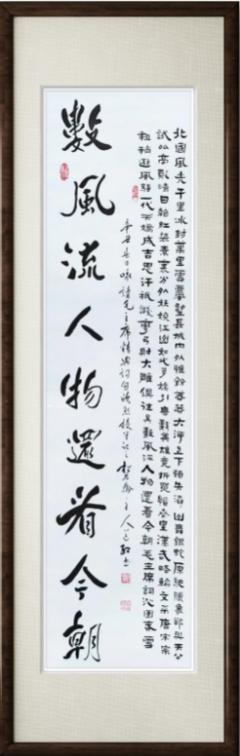 北國風光千里冰封萬里雪飄望長城內外惟餘莽莽大河上下頓失滔滔山舞銀蛇原馳蠟象欲與天公
試比高須晴日看紅裝素裹分外妖嬈江山如此多嬌引無數英雄競折腰惜秦皇漢武略輸文采唐宗宋
祖稍遜風騷一代天驕成吉思汗祇識彎弓射大雕俱往矣數風流人物還看今朝毛主席詞沁園春雪
辛丑春日咏讀毛主席
數風流人物還看今朝